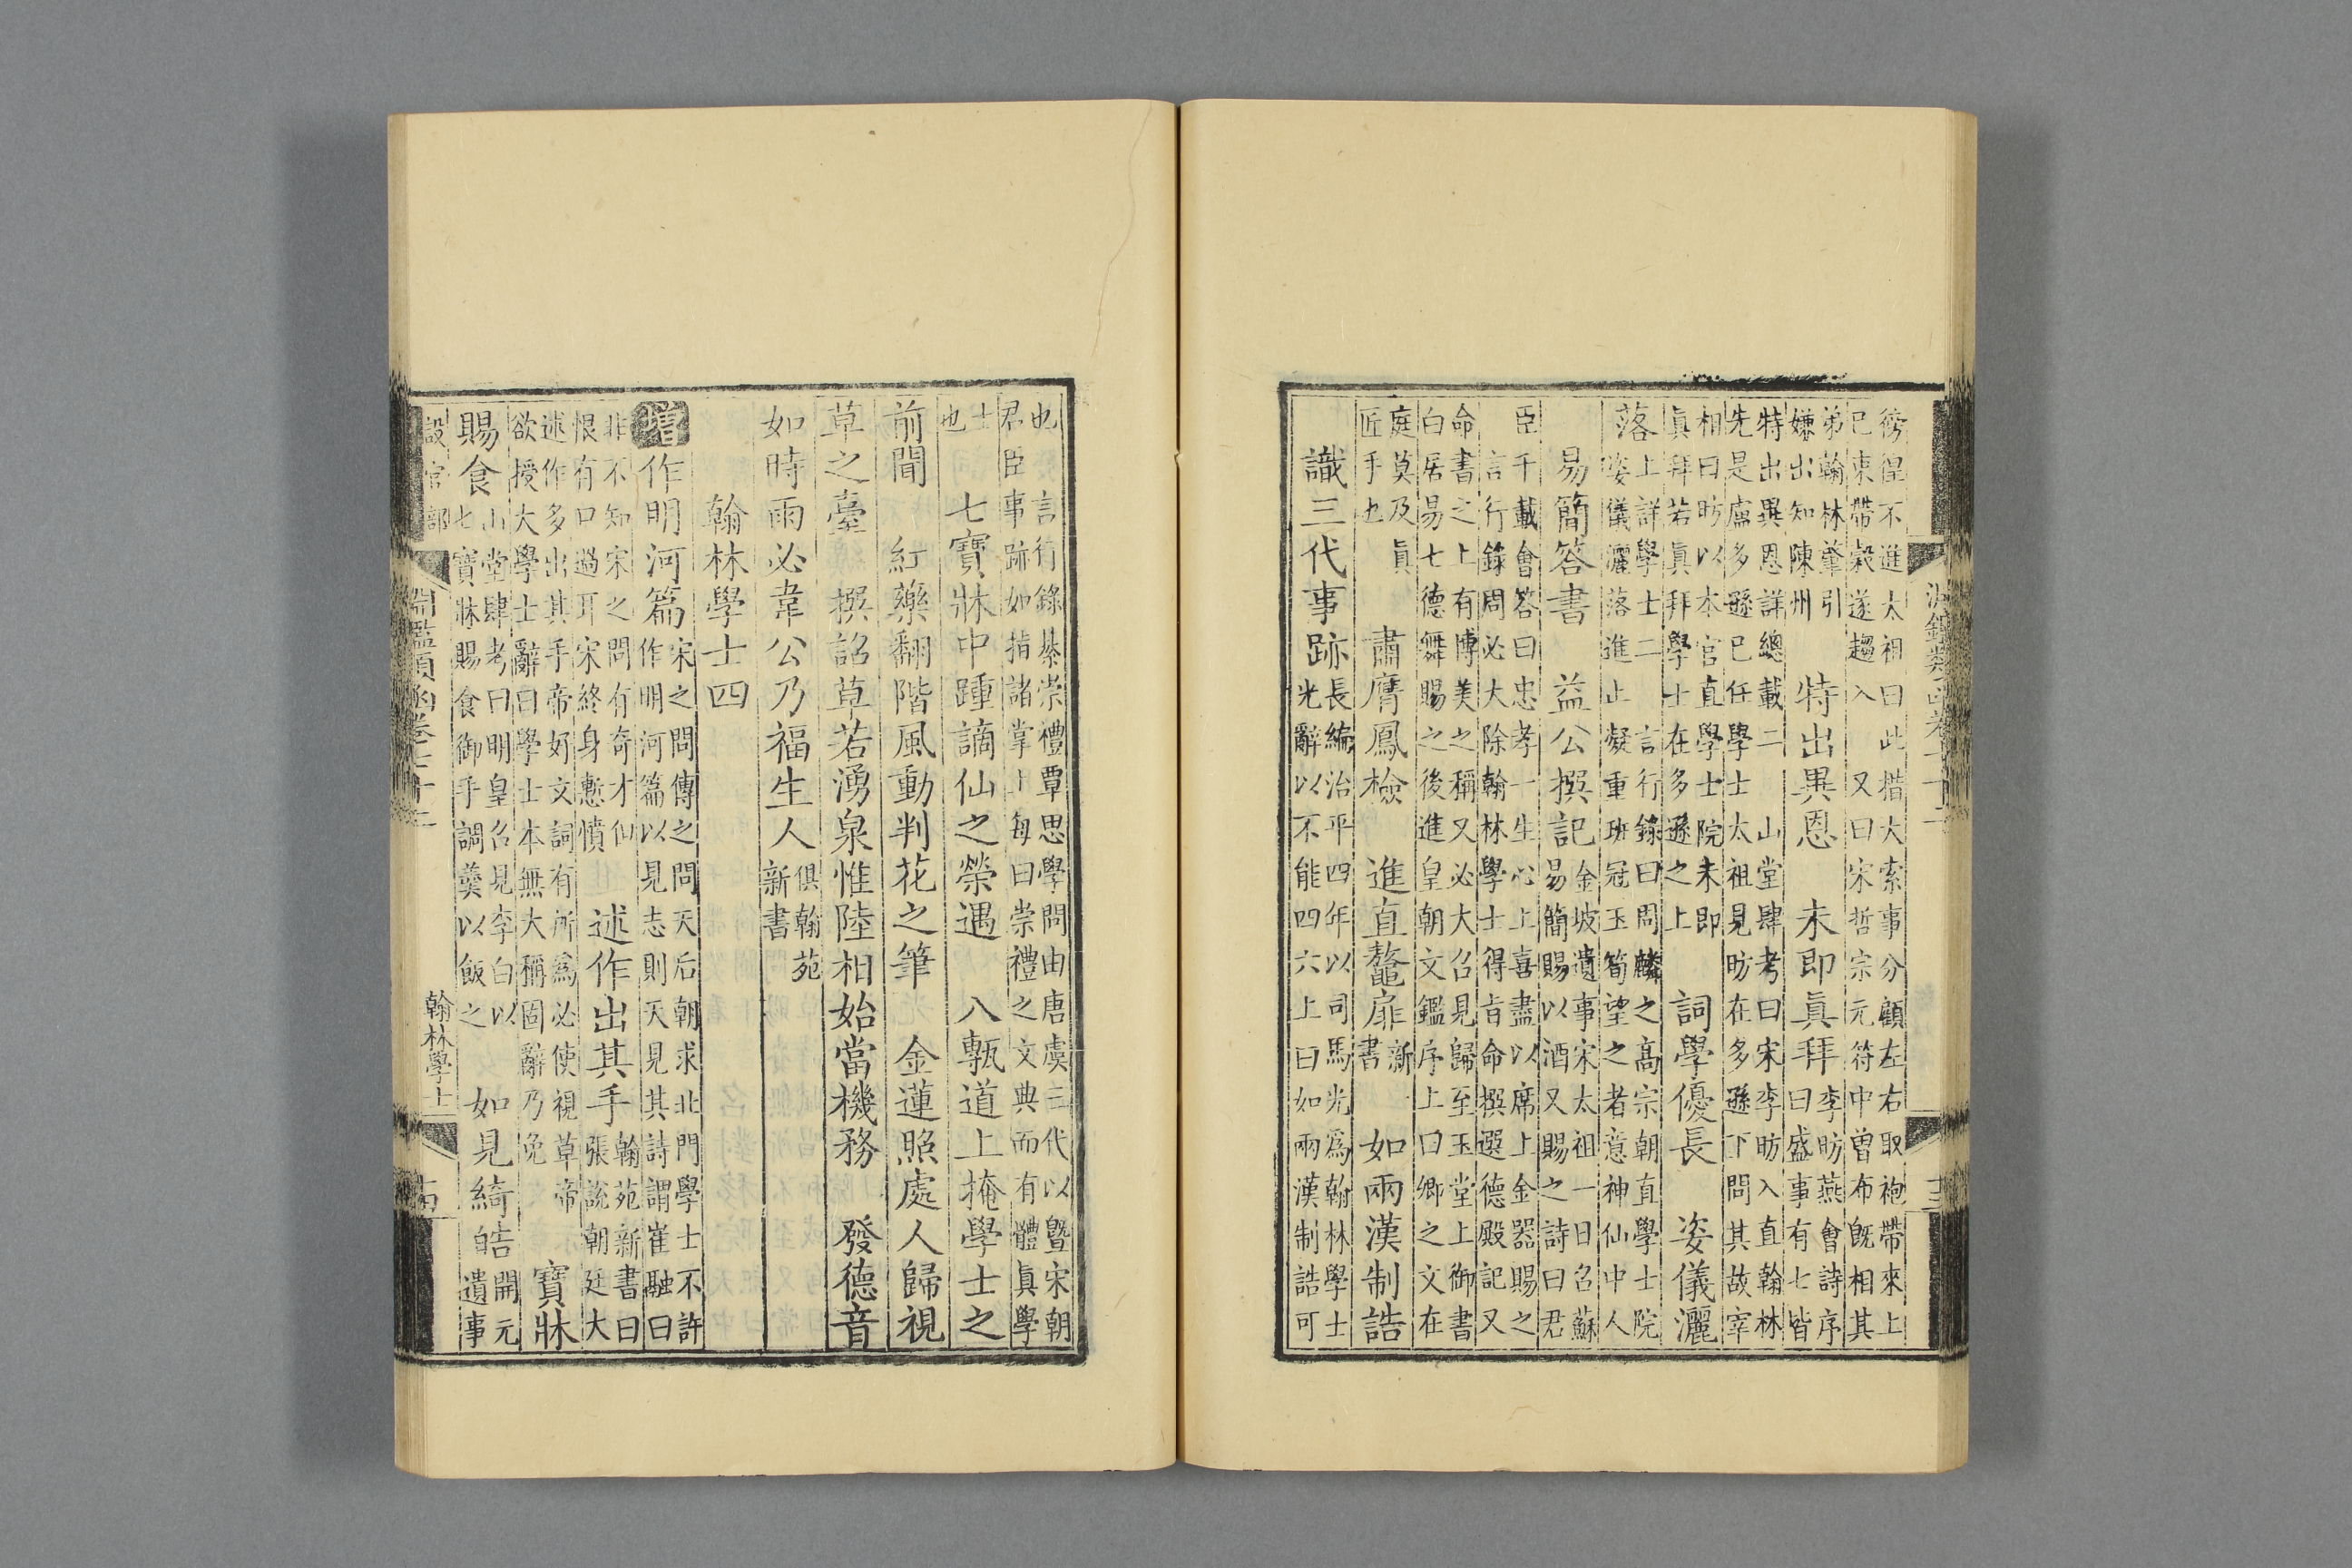 淵鑑類函卷七十二 十三
徬徨不進太祖曰此措大索事分顧左右取袍帶來上
已束帶穀遂趨入 又曰宋哲宗元符中曾布既相其
弟翰林肇引
嫌出知陳州
特出異恩 未即眞拜
李昉燕會詩序
曰盛事有七皆
特出異恩詳總載二 山堂肆考曰宋李昉入直翰林
先是盧多遜已任學士太祖見昉在多遜下問其故宰
相曰昉以本官直學士院未即
眞拜若眞拜學士在多遜之上
詞學優長 姿儀灑
落
上詳學士二 言行錄曰周麟之高宗朝直學士院
姿儀灑落進止凝重班冠玉筍望之者意神仙中人
易簡答書 益公撰記
金坡遺事宋太祖一日召蘇
易簡賜以酒又賜之詩曰君
臣千載會答曰忠孝一生心上喜盡以席上金器賜之
言行錄周必大除翰林學士得旨命撰選德殿記又
命書之上有博美之稱又必大召見歸至玉堂上御書
白居易七德舞賜之後進皇朝文鑑序上曰卿之文在
庭莫及眞
匠手也
肅膺鳳檢 進直鼇扉
新
書
如兩漢制誥
識三代事跡
長編治平四年以司馬光爲翰林學士
光辭以不能四六上曰如兩漢制誥可
也 言行錄綦崇禮覃思學問由唐虞三代以曁宋朝
君臣事跡如指諸掌上每曰崇禮之文典而有體眞學
士
也
七寶牀中踵謫仙之榮遇 八甎道上掩學士之
前聞 紅藥翻階風動判花之筆 金蓮照處人歸視
草之臺 撰詔草若湧泉惟陸相始當機務 發德音
如時雨必韋公乃福生人
俱翰苑
新書
翰林學士四
增 作明河篇
宋之問傳之問天后朝求北門學士不許
作明河篇以見志則天見其詩謂崔融曰
非不知宋之問有奇才但
恨有口過耳宋終身慙憤
述作出其手
翰苑新書曰
張說朝廷大
述作多出其手帝好文詞有所爲必使視草帝
欲授大學士辭曰學士本無大稱固辭乃免
寶牀
賜食
山堂肆考曰明皇召見李白以
七寶牀賜食御手調羹以飯之
如見綺皓
開元
遺事
設官部 淵鑑類函卷七十二 翰林學士 十四